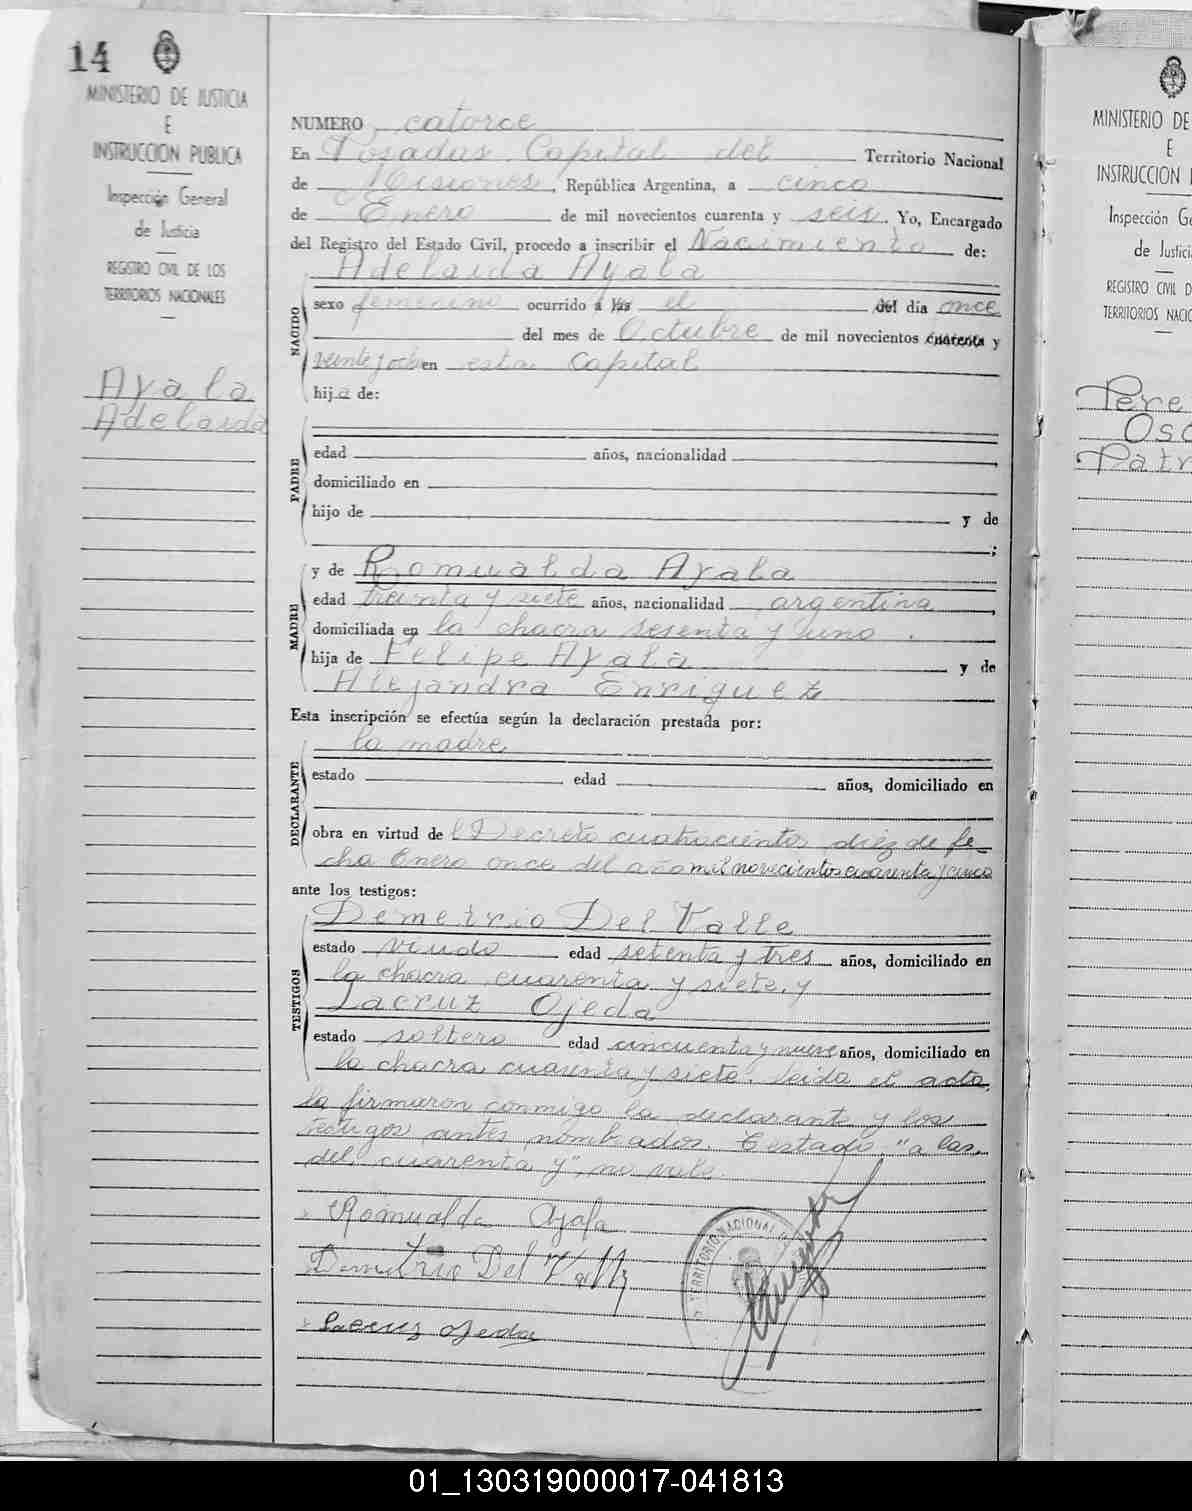 14
MINISTERIO DE JUSTICIA
E
INSTRUCCION PUBLICA
Inspección General
de Justicia
REGISTRO CIVIL DE LOS
TERRITORIOS NACIONALES
Ayala
Adelaida
NUMERO catorce
En Posadas Capital del Territorio Nacional
de Misiones, República Argentina, a cinco
de Enero de mil novecientos cuarenta y seis. Yo, Encargado
del Registro del Estado Civil, procedo a inscribir el Nacimiento de:
Adelaida Ayala
NACIDO
sexo femenino ocurrido a las el del día once
del mes de Octubre de mil novecientos cuarenta y
veinte y ocho en esta Capital
hija de:
PADRE
edad años, nacionalidad
domiciliado en
hijo de y de
;
MADRE
y de Romualda Ayala
edad treinta y siete años, nacionalidad argentina
domiciliada en la chacra sesenta y uno.
hija de Felipe Ayala y de
Alejandra Enriquez
Esta inscripción se efectúa según la declaración prestada por:
la madre
DECLARANTE
estado edad años, domiciliado en
obra en virtud del Decreto cuatrocientos diez de fe-
cha Enero once del año mil novecientos cuarenta y cinco
ante los testigos:
Demetrio Del Valle
TESTIGOS
estado viudo edad setenta y tres años, domiciliado en
la chacra cuarenta y siete, y
Lacruz Ojeda
estado soltero edad cincuenta y nueve años, domiciliado en
la chacra cuarenta y siete. Leida el acta,
la firmaron conmigo la declarante y los
testigos antes nombrados. Testado: "a las,
del cuarenta y", no vale.
Romualda Ayala
Demetrio Del Valle
Lacruz Ojeda
TERRITORIO NACIONAL
MINISTERIO DE
E
INSTRUCCION
Inspección Ge
de Justici
REGISTRO CIVIL D
TERRITORIOS NACIO
Pere
Osc
Patr
01_130319000017-041813